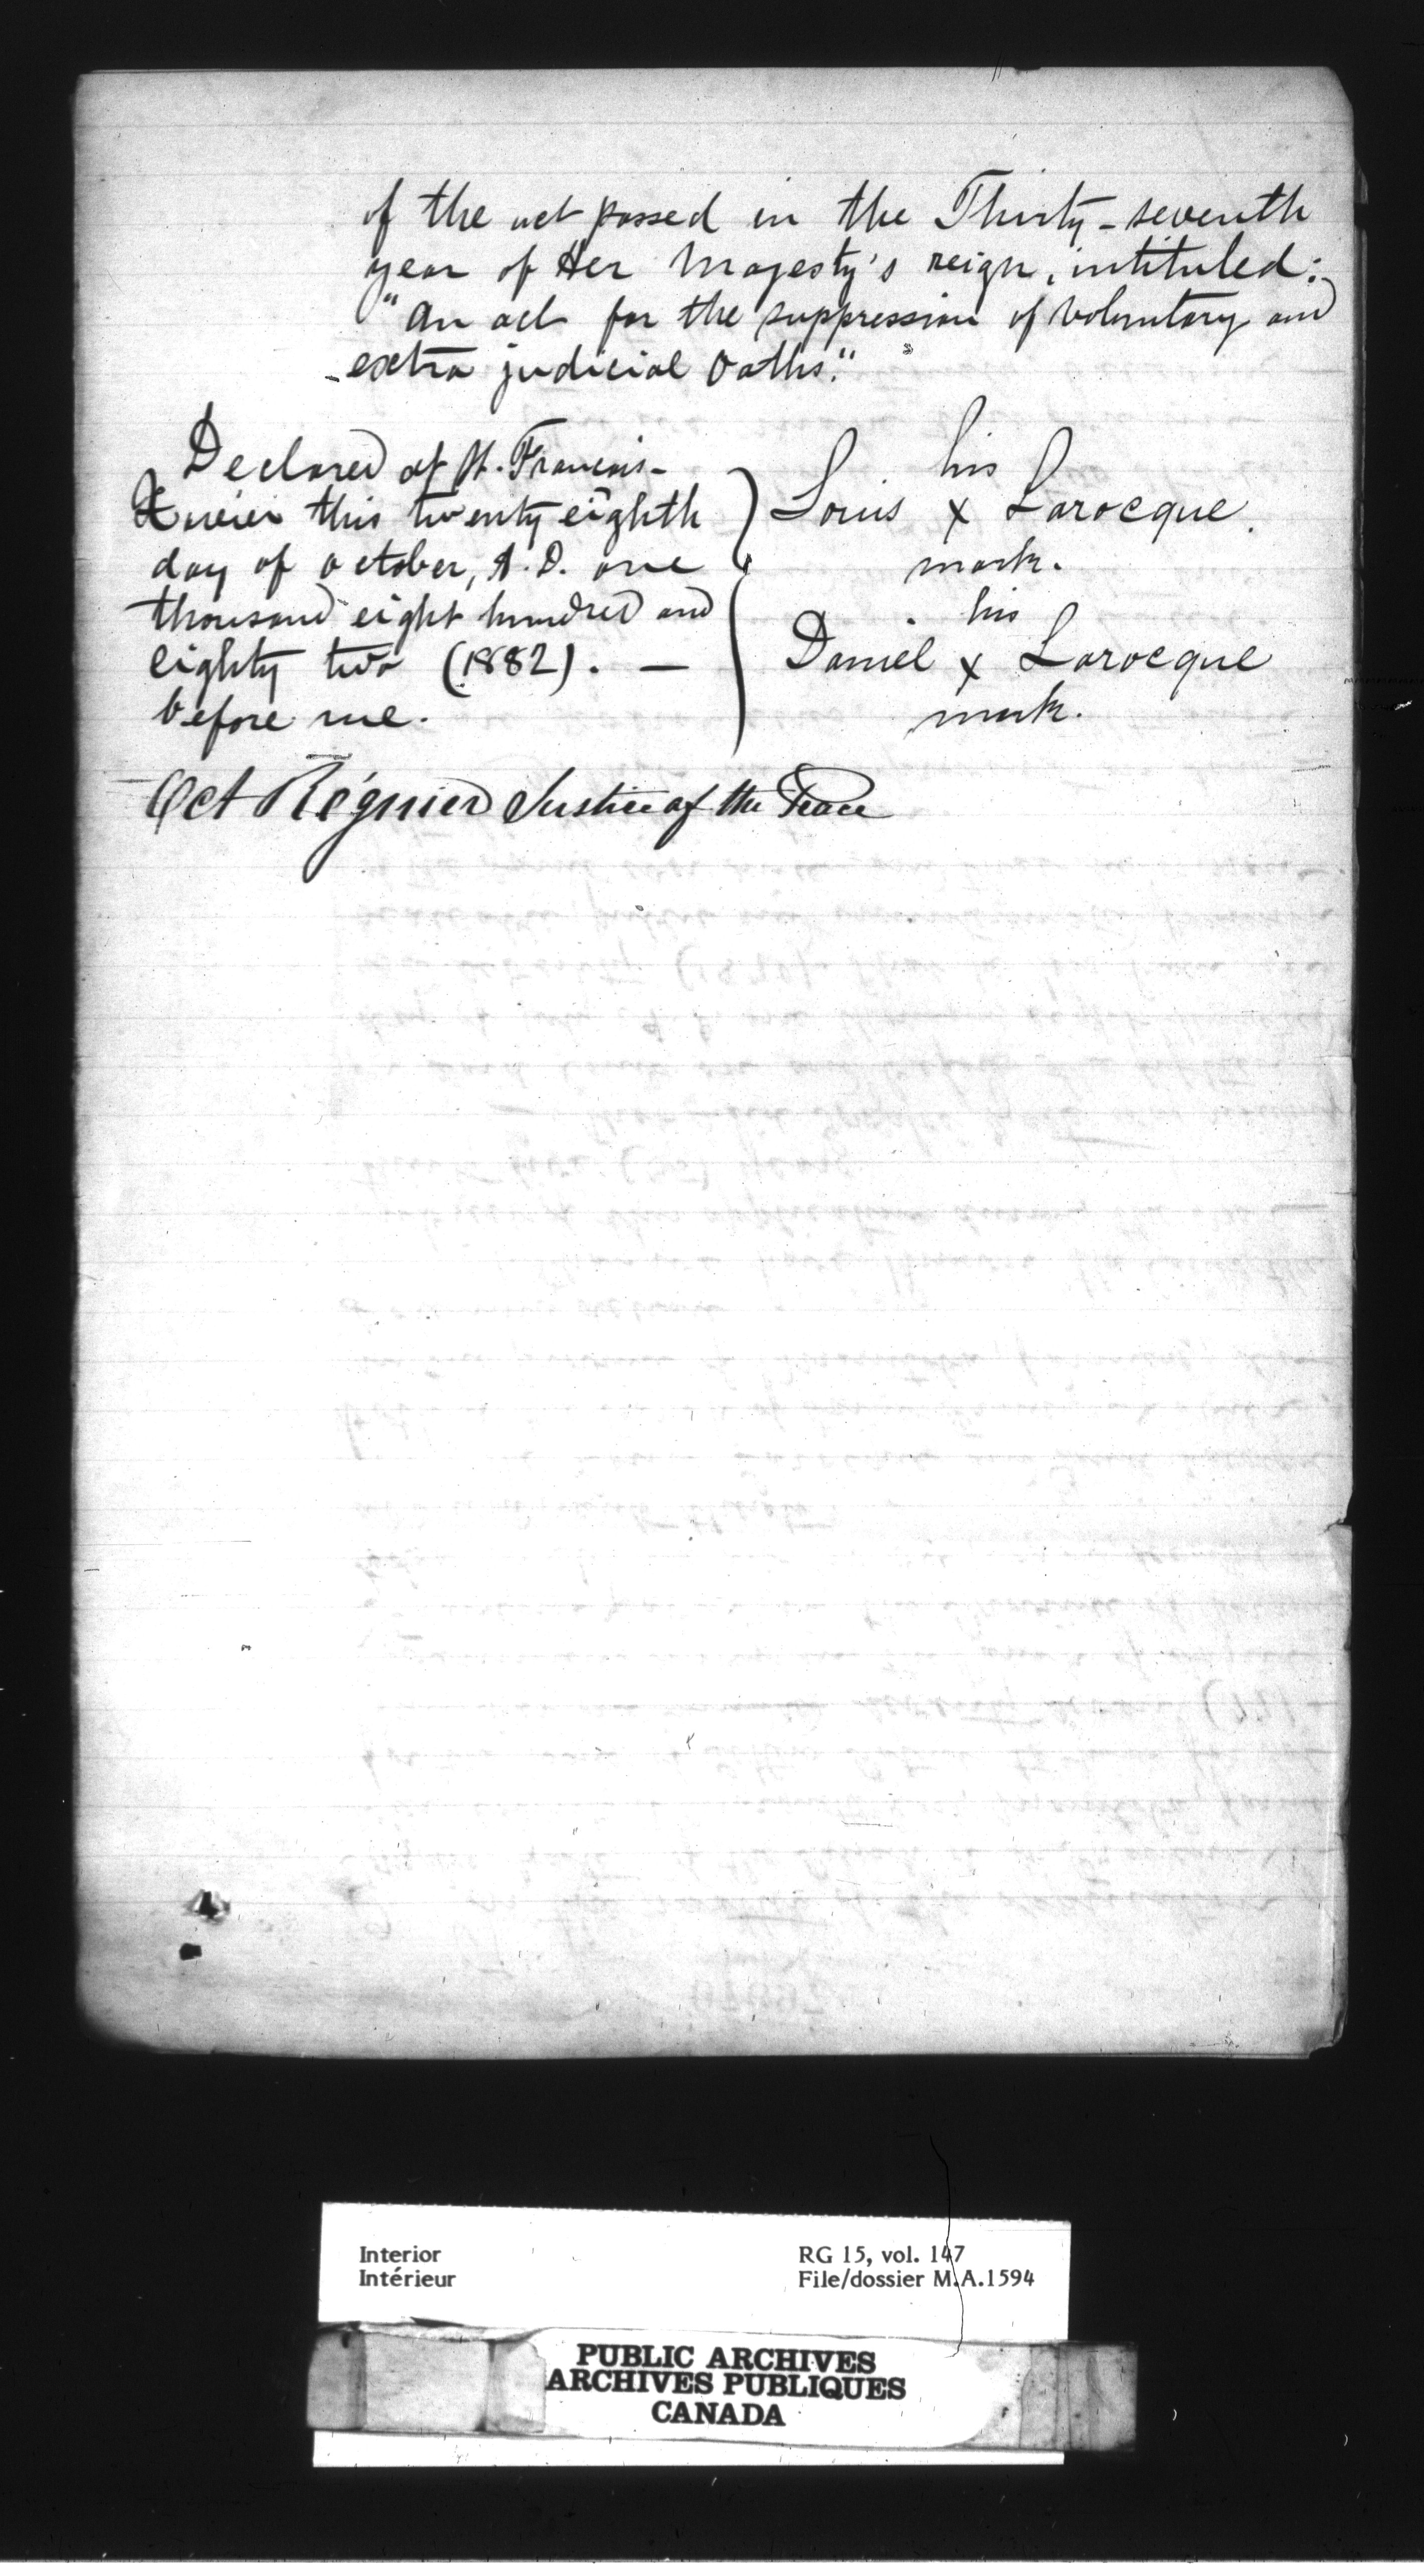 of the act passed in the Thirty-seventh
year of Her Majesty's reign, intituled:
"An act for the suppression of voluntary and
extra judicial oaths."
Declared at St. Francois-
Xavier this twenty eighth
day of october, A.D. one
thousand eight hundred and
eighty two (1882). —
before me.
his
Louis x Larocque.
mark.
his
Daniel x Larocque
mark.
Oct Régnier Justice of the Peace
Interior
Intérieur
RG 15, vol. 147
File/dossier M.A.1594
PUBLIC ARCHIVES
ARCHIVES PUBLIQUES
CANADA